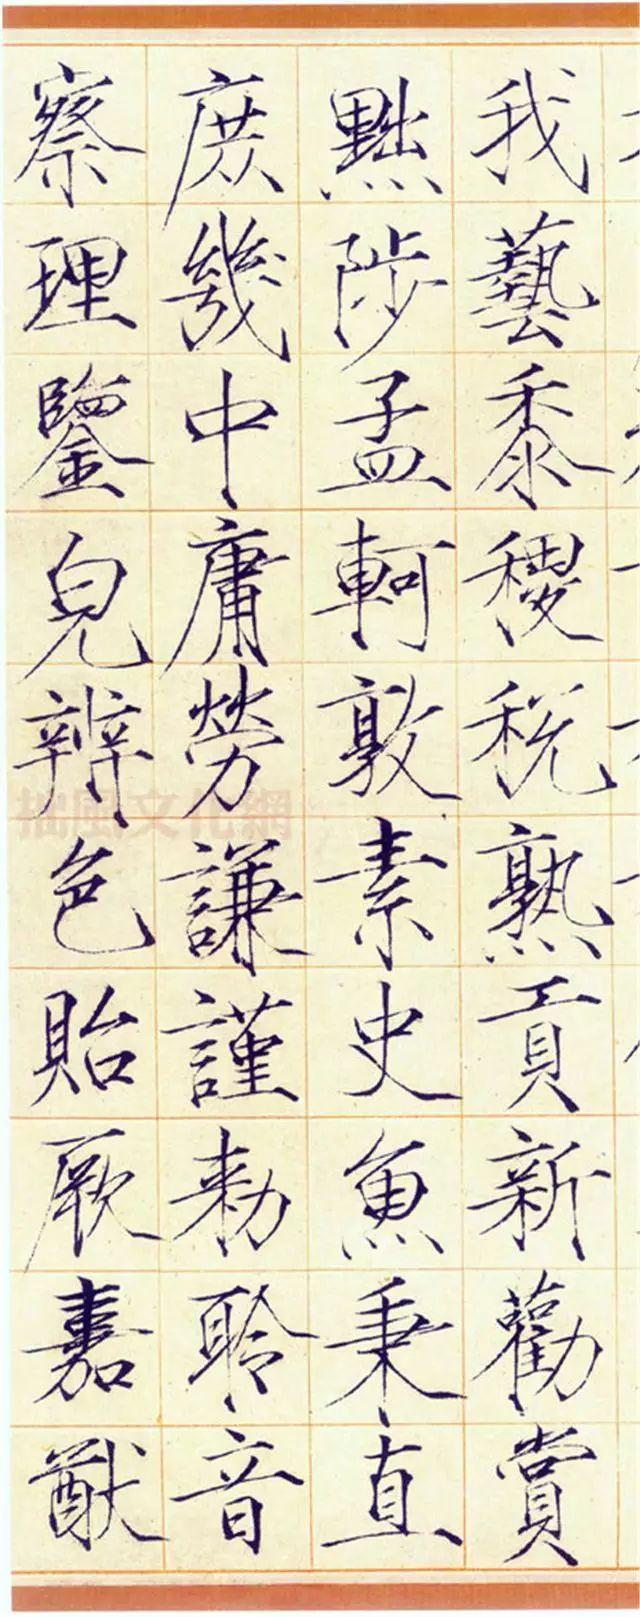 我藝黍稷稅熟貢新勸賞
黜陟孟軻敦素史魚秉直
庶幾中庸勞謙謹勑聆音
察理鑒皃辨色貽厥嘉猷
拙風文化網